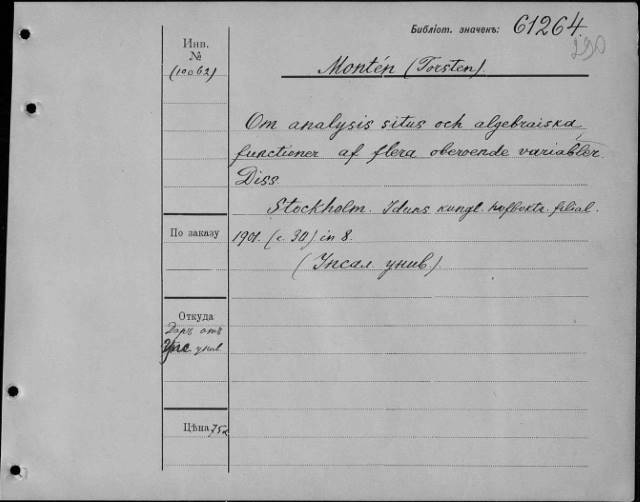 Библіот. значекъ: 61264
290
Инв.
№
(10062)
Montén (Torsten).
Om analysis situs och algebraiska
functioner af flera oberoende variabler.
Diss.
Stockholm. Iduns kungl. hofboktr. filial.
По заказу
1901. (с. 30) in 8.
(Упсал. унив.)
Откуда
Даръ отъ
Упс. унив.
Цѣна 75к